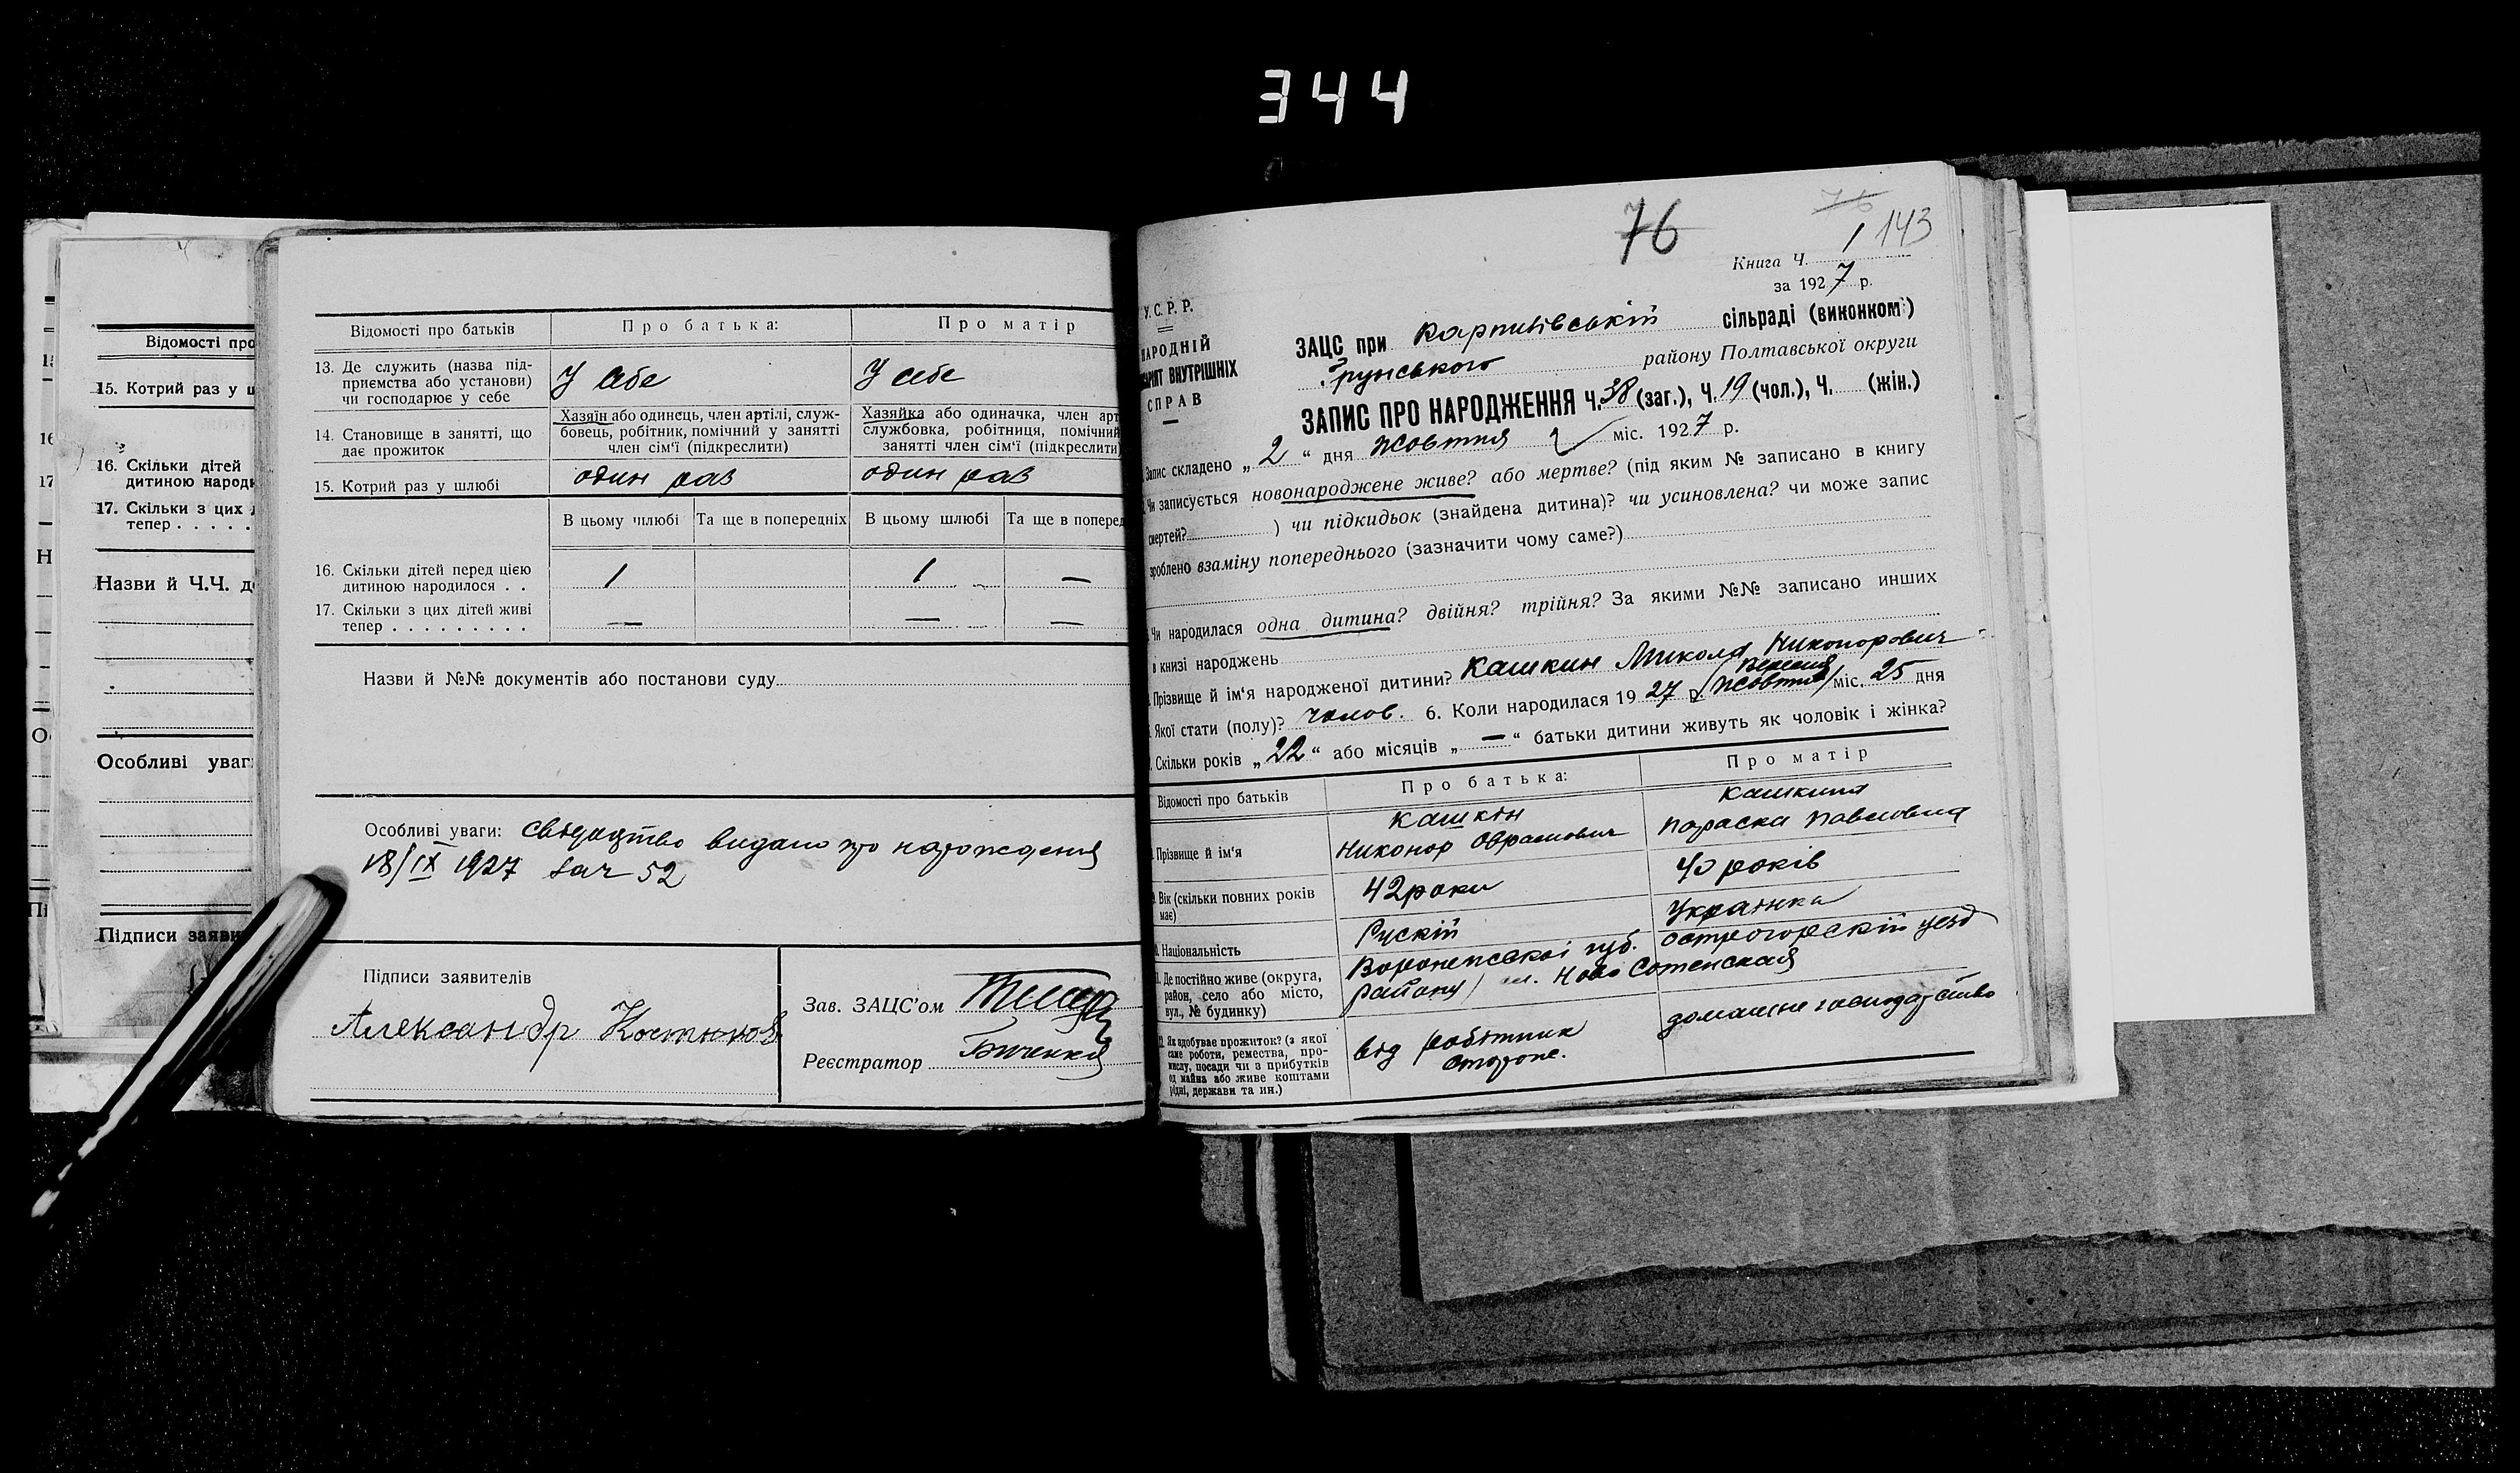 344
Відомості про
15. Котрий раз у ш
16. Скільки дітей
дитиною народи
17. Скільки з цих д
тепер . . . . .
Назви й Ч.Ч. д
Особливі уваг
Підписи заяви
Відомості про батьків
Про батька:
Про матір
13. Де служить (назва під-
приємства або установи)
чи господарює у себе
У себе
У себе
14. Становище в занятті, що
дає прожиток
Хазяїн або одинець, член артілі, служ-
бовець, робітник, помічний у занятті
член сім'ї (підкреслити)
Хазяйка або одиначка, член арт
службовка, робітниця, помічний
занятті член сім'ї (підкреслити)
15. Котрий раз у шлюбі
один раз
один раз
В цьому шлюбі
Та ще в попередніх
В цьому шлюбі
Та ще в поперед
16. Скільки дітей перед цією
дитиною народилося . .
1
1
—
17. Скільки з цих дітей живі
тепер . . . . . . . . .
—
—
—
Назви й №№ документів або постанови суду
Особливі уваги: свідоцтво видано про народження
18/IX 1927 зач 52
Підписи заявителів
Александр Костюков
Зав. ЗАЦС'ом
Реєстратор
76
76
143
Книга Ч. 1
за 1927 р.
У.С.Р.Р.
НАРОДНІЙ
АРІЯТ ВНУТРІШНІХ
СПРАВ
ЗАЦС при Карпилівській сільраді (виконком)
Грунського району Полтавської округи
ЗАПИС ПРО НАРОДЖЕННЯ Ч. 38 (заг.), Ч. 19 (чол.), Ч. (жін.)
Запис складено „ 2 “ дня Жовтня міс. 1927 р.
Чи записується новонароджене живе? або мертве? (під яким № записано в книгу
смертей? ) чи підкидьок (знайдена дитина)? чи усиновлена? чи може запис
зроблено взаміну попереднього (зазначити чому саме?)
Чи народилася одна дитина? двійня? трійня? За якими №№ записано инших
в книзі народжень
Прізвище й ім'я народженої дитини? Кашкин Микола Никонорович
Вересня
Якої стати (полу)? чолов. 6. Коли народилася 1927 р. (Жовтня) міс. 25 дня
Скільки років „ 22 “ або місяців „ — “ батьки дитини живуть як чоловік і жінка?
Відомості про батьків
Про батька:
Про матір
Прізвище й ім'я
Кашкін
Никонор Оврамович
Кашкина
Параска Павловна
Вік (скільки повних років
має)
42 роки
40 років
Національність
Рускій
Українка
Де постійно живе (округа,
район, село або місто,
вул., № будинку)
Воронежської губ. острогорскій уезд
району) сл. Ново Сотенская
Як здобуває прожиток? (з якої
саме роботи, ремества, про-
мислу, посади чи з прибутків
од майна або живе коштами
рідні, держави та ин.)
від робітник
сторонє.
домашнє господарство